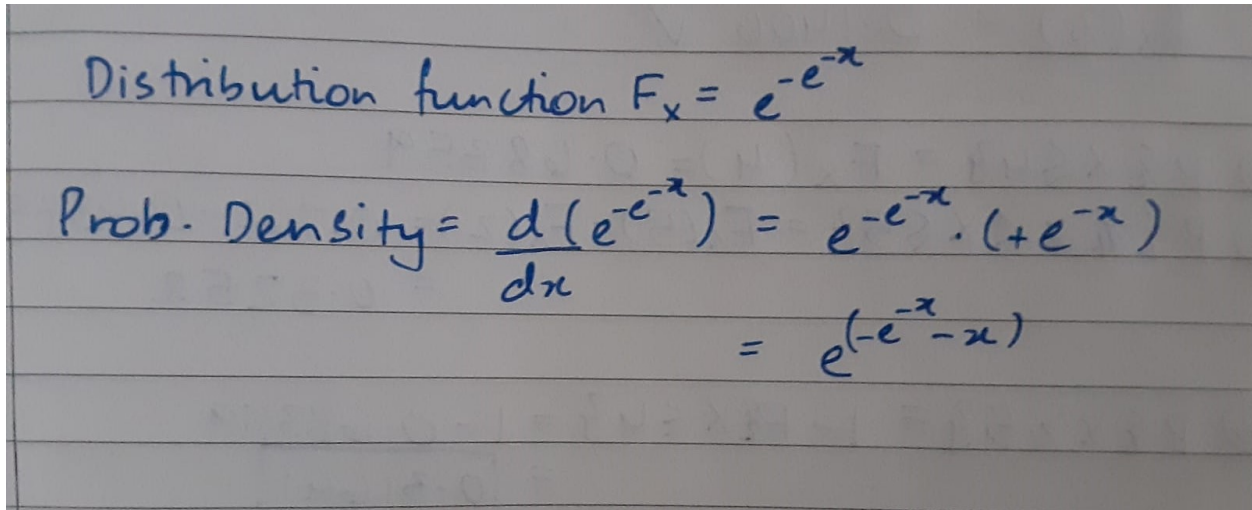 Distribution function Fₓ = e^{-e^{-x}}
Prob. Density = d/dx (e^{-e^{-x}}) = e^{-e^{-x}} · (+e^{-x})
= e^{(-e^{-x} - x)}